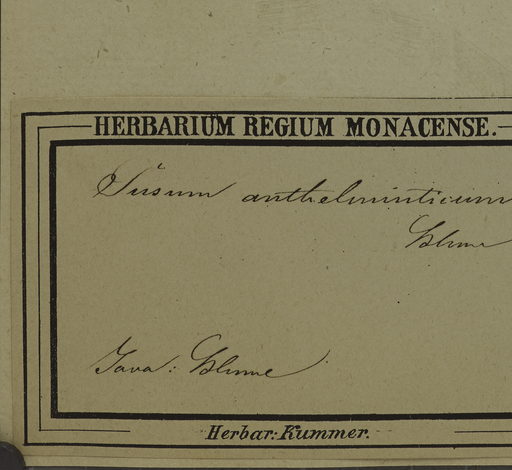 HERBARIUM REGIUM MONACENSE.
Susum anthelminticum
Blume
Java: Blume
Herbar: Kummer.